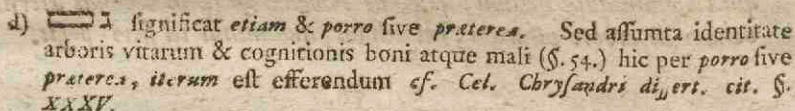 d) גם significat etiam & porro sive præterea. Sed assumta identitate
arboris vitarum & cognitionis boni atque mali (§. 54.) hic per porro sive
præterea, iterum est efferendum cf. Cel. Chrysandri dissert. cit. §.
XXXV.